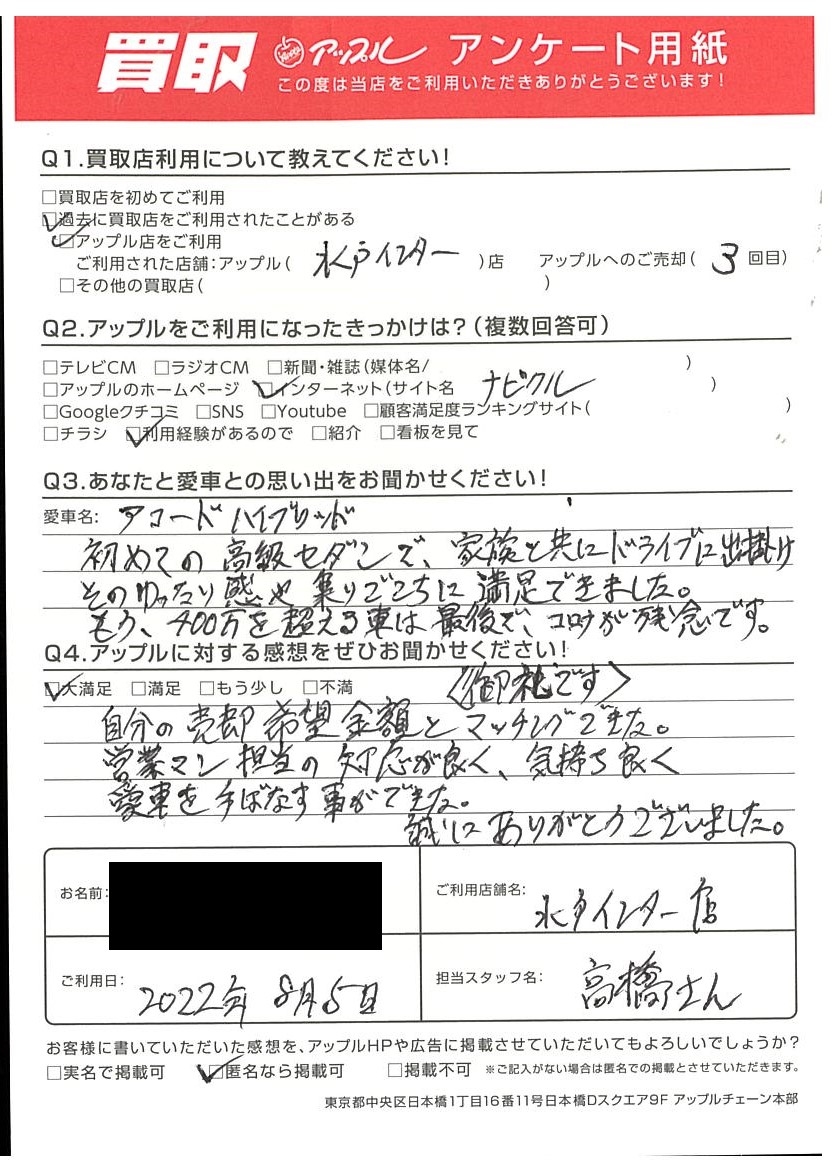 買取 アップル アンケート用紙
この度は当店をご利用いただきありがとうございます!
Q1.買取店利用について教えてください!
□買取店を初めてご利用
☑過去に買取店をご利用されたことがある
☑アップル店をご利用
ご利用された店舗:アップル( 水戸インター )店 アップルへのご売却( 3 回目)
□その他の買取店( )
Q2.アップルをご利用になったきっかけは?(複数回答可)
□テレビCM □ラジオCM □新聞・雑誌(媒体名/ )
□アップルのホームページ ☑インターネット(サイト名 ナビクル )
□Googleクチコミ □SNS □Youtube □顧客満足度ランキングサイト( )
□チラシ ☑利用経験があるので □紹介 □看板を見て
Q3.あなたと愛車との思い出をお聞かせください!
愛車名: アコードハイブリッド
初めての高級セダンで、家族と共にドライブに出掛け
そのゆったり感や乗りごこちに満足できました。
もう、400万を超える車は最後で、コロナが残念です。
Q4.アップルに対する感想をぜひお聞かせください!
☑大満足 □満足 □もう少し □不満 《御礼です》
自分の売却希望金額とマッチングできた。
営業マン担当の対応が良く、気持ち良く
愛車を手ばなす事ができた。
誠にありがとうございました。
お名前:
ご利用店舗名: 水戸インター店
ご利用日: 2022年 8月5日
担当スタッフ名: 高橋さん
お客様に書いていただいた感想を、アップルHPや広告に掲載させていただいてもよろしいでしょうか?
□実名で掲載可 ☑匿名なら掲載可 □掲載不可 ※ご記入がない場合は匿名での掲載とさせていただきます。
東京都中央区日本橋1丁目16番11号日本橋Dスクエア9F アップルチェーン本部